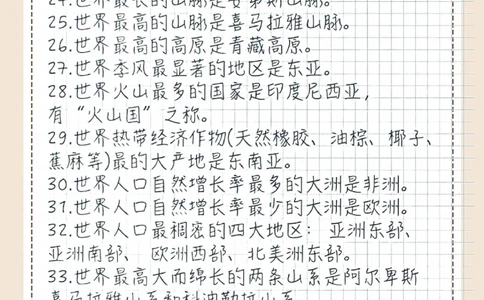 24.世界最长的山脉是安第斯山脉。
25.世界最高的山脉是喜马拉雅山脉。
26.世界最高的高原是青藏高原。
27.世界季风最显著的地区是东亚。
28.世界火山最多的国家是印度尼西亚，
有“火山国”之称。
29.世界热带经济作物(天然橡胶、油棕、椰子、
蕉麻等)最的大产地是东南亚。
30.世界人口自然增长率最多的大洲是非洲。
31.世界人口自然增长率最少的大洲是欧洲。
32.世界人口最稠密的四大地区： 亚洲东部、
亚洲南部、 欧洲西部、北美洲东部。
33.世界最高大而绵长的两条山系是阿尔卑斯
喜马拉雅山系和科迪勒拉山系